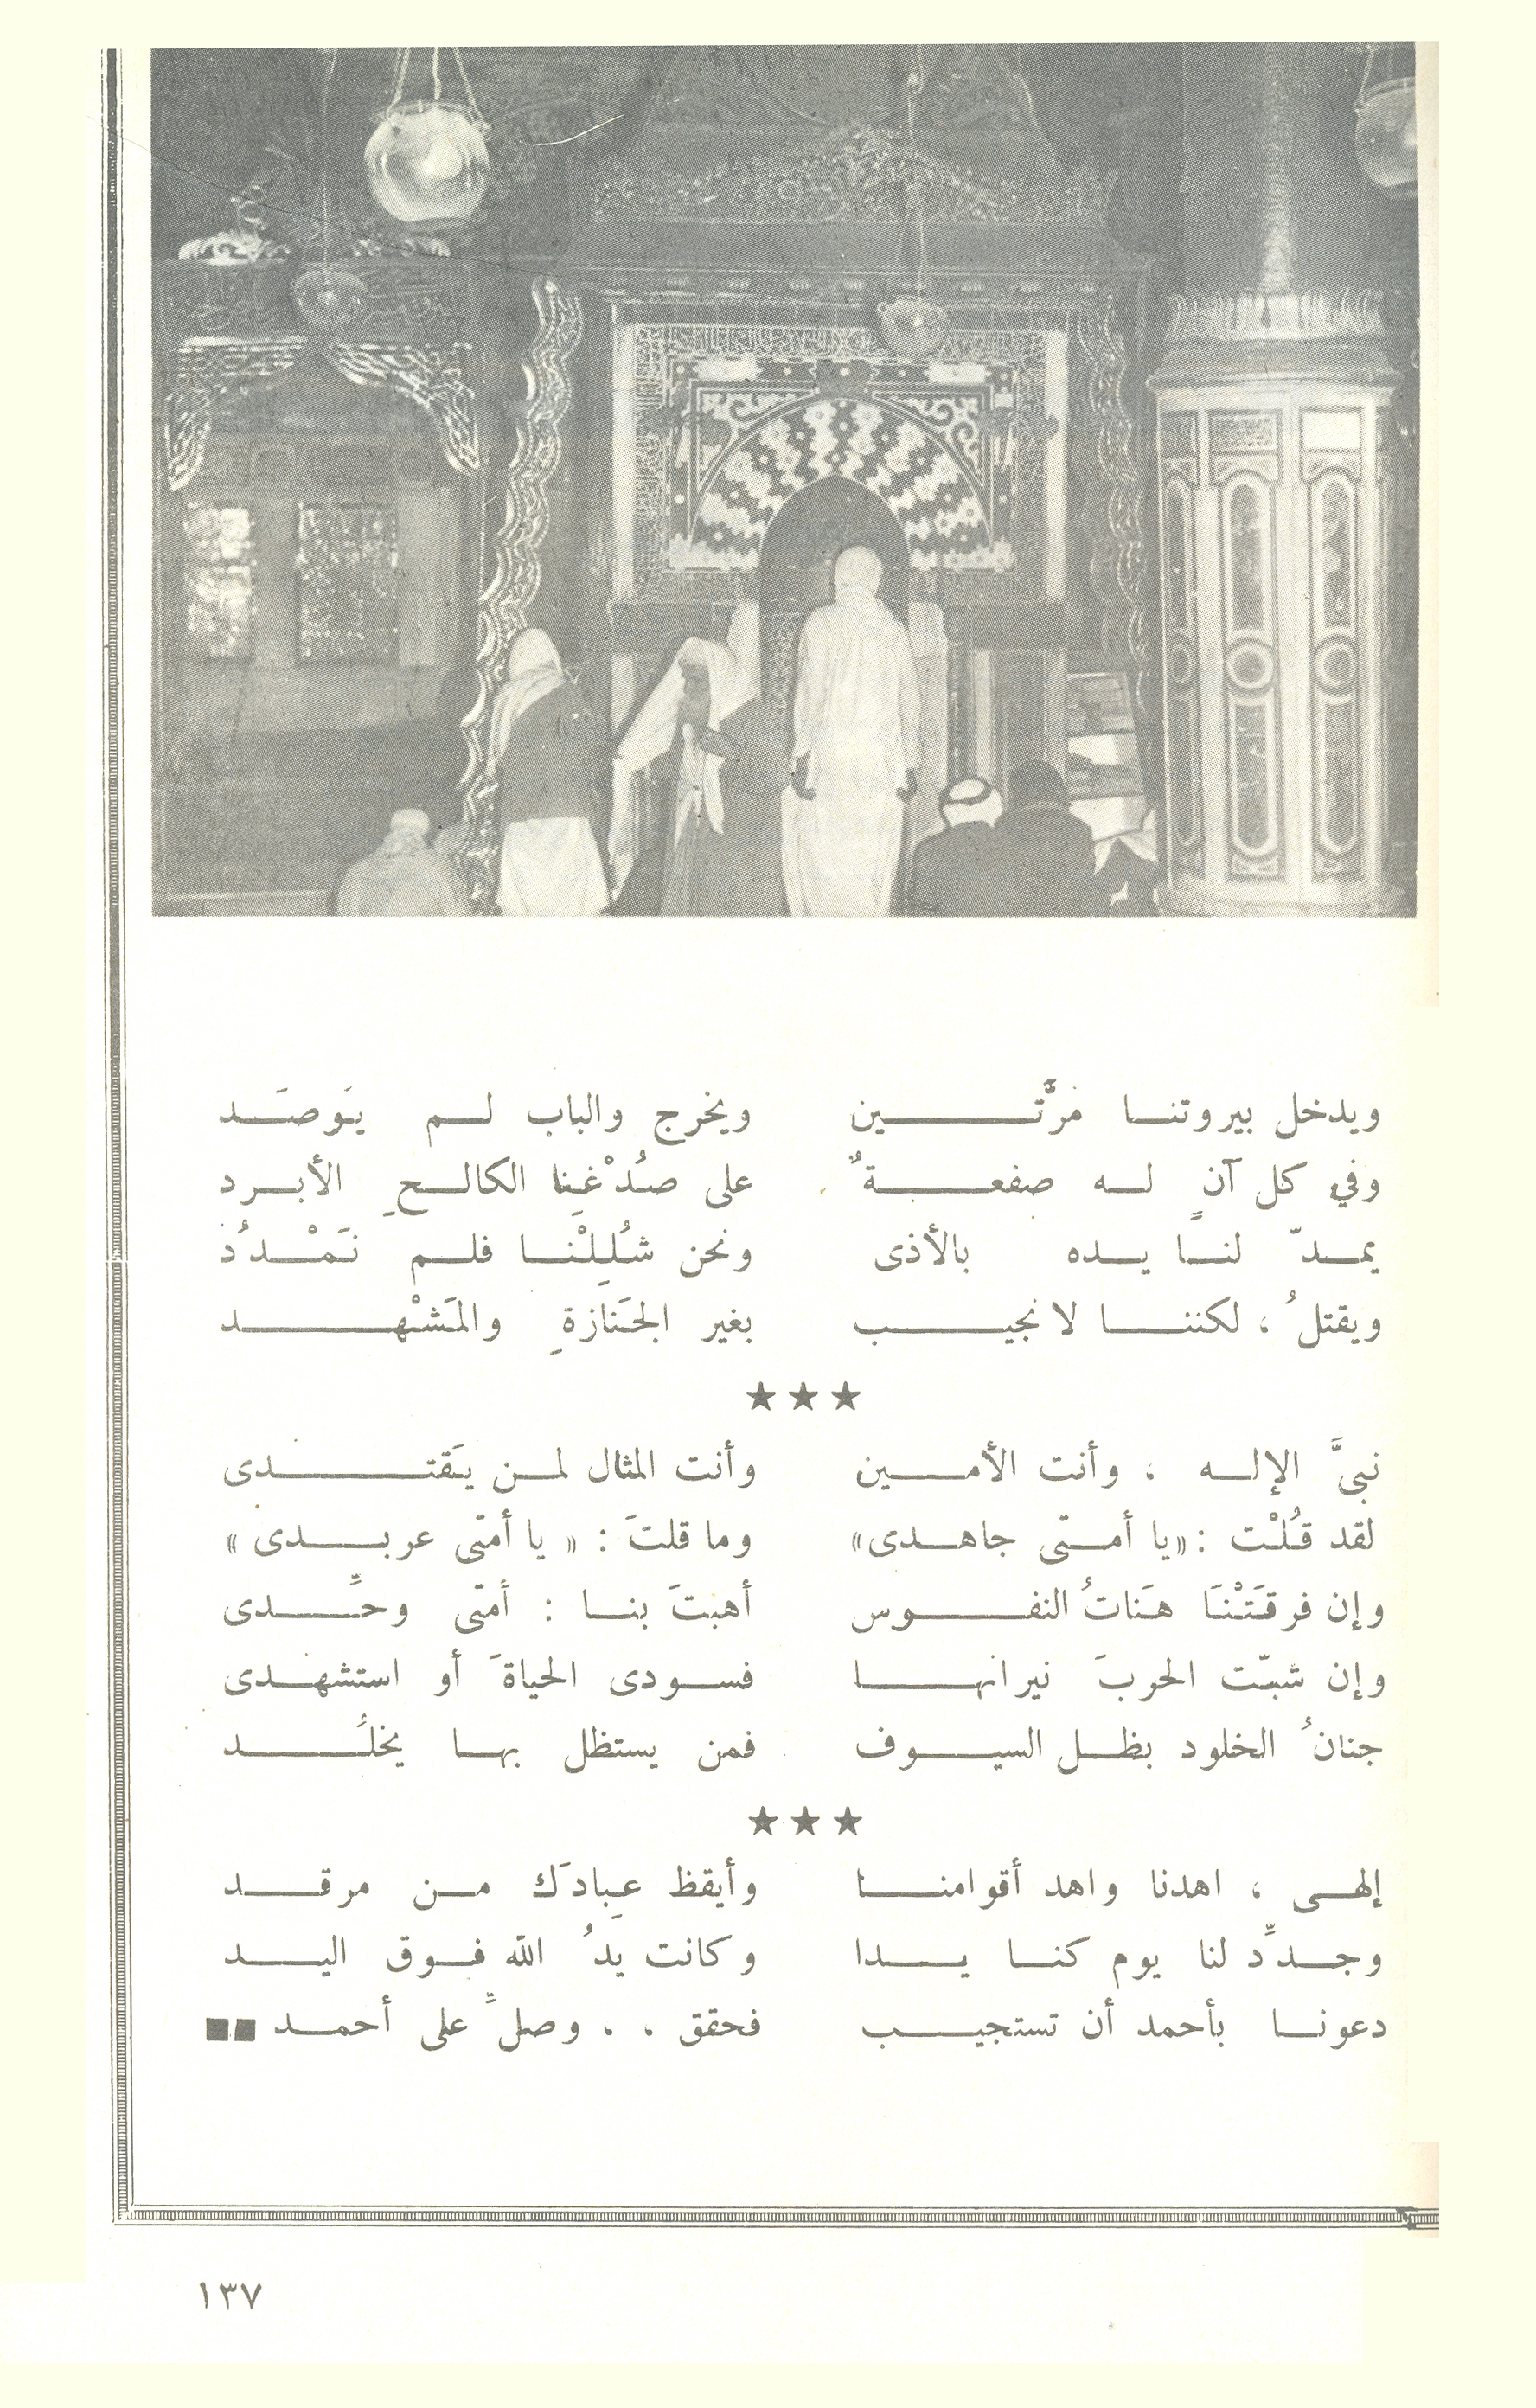 ويدخل بيروتنا مرَّتين ويخرج والباب لم يَوصَد
وفي كل آنٍ له صفعةٌ على صُدْغِنا الكالحِ الأبرد
يمدّ لنا يده بالأذى ونحن شُلِلْنا فلم نَمْدُد
ويقتلُ ، لكننا لا نجيب بغير الجَنازةِ والمَشْهد
★★★
نبىَّ الإله ، وأنت الأمين وأنت المثال لمن يَقتدى
لقد قُلْت : «يا أمتى جاهدى» وما قلتَ : « يا أمتى عربدى »
وإن فرقَتْنَا هَناتُ النفوس أهبتَ بنا : أمتى وحِّدى
وإن شبّت الحربَ نيرانها فسودى الحياةَ أو استشهدى
جنانُ الخلود بظل السيوف فمن يستظل بها يخلَد
★★★
إلهى ، اهدنا واهد أقوامنا وأيقظ عِبادَك من مرقد
وجدِّد لنا يوم كنا يدا وكانت يدُ الله فوق اليد
دعونا بأحمد أن تستجيب فحقق ، ، وصلِّ على أحمد ■■
١٣٧